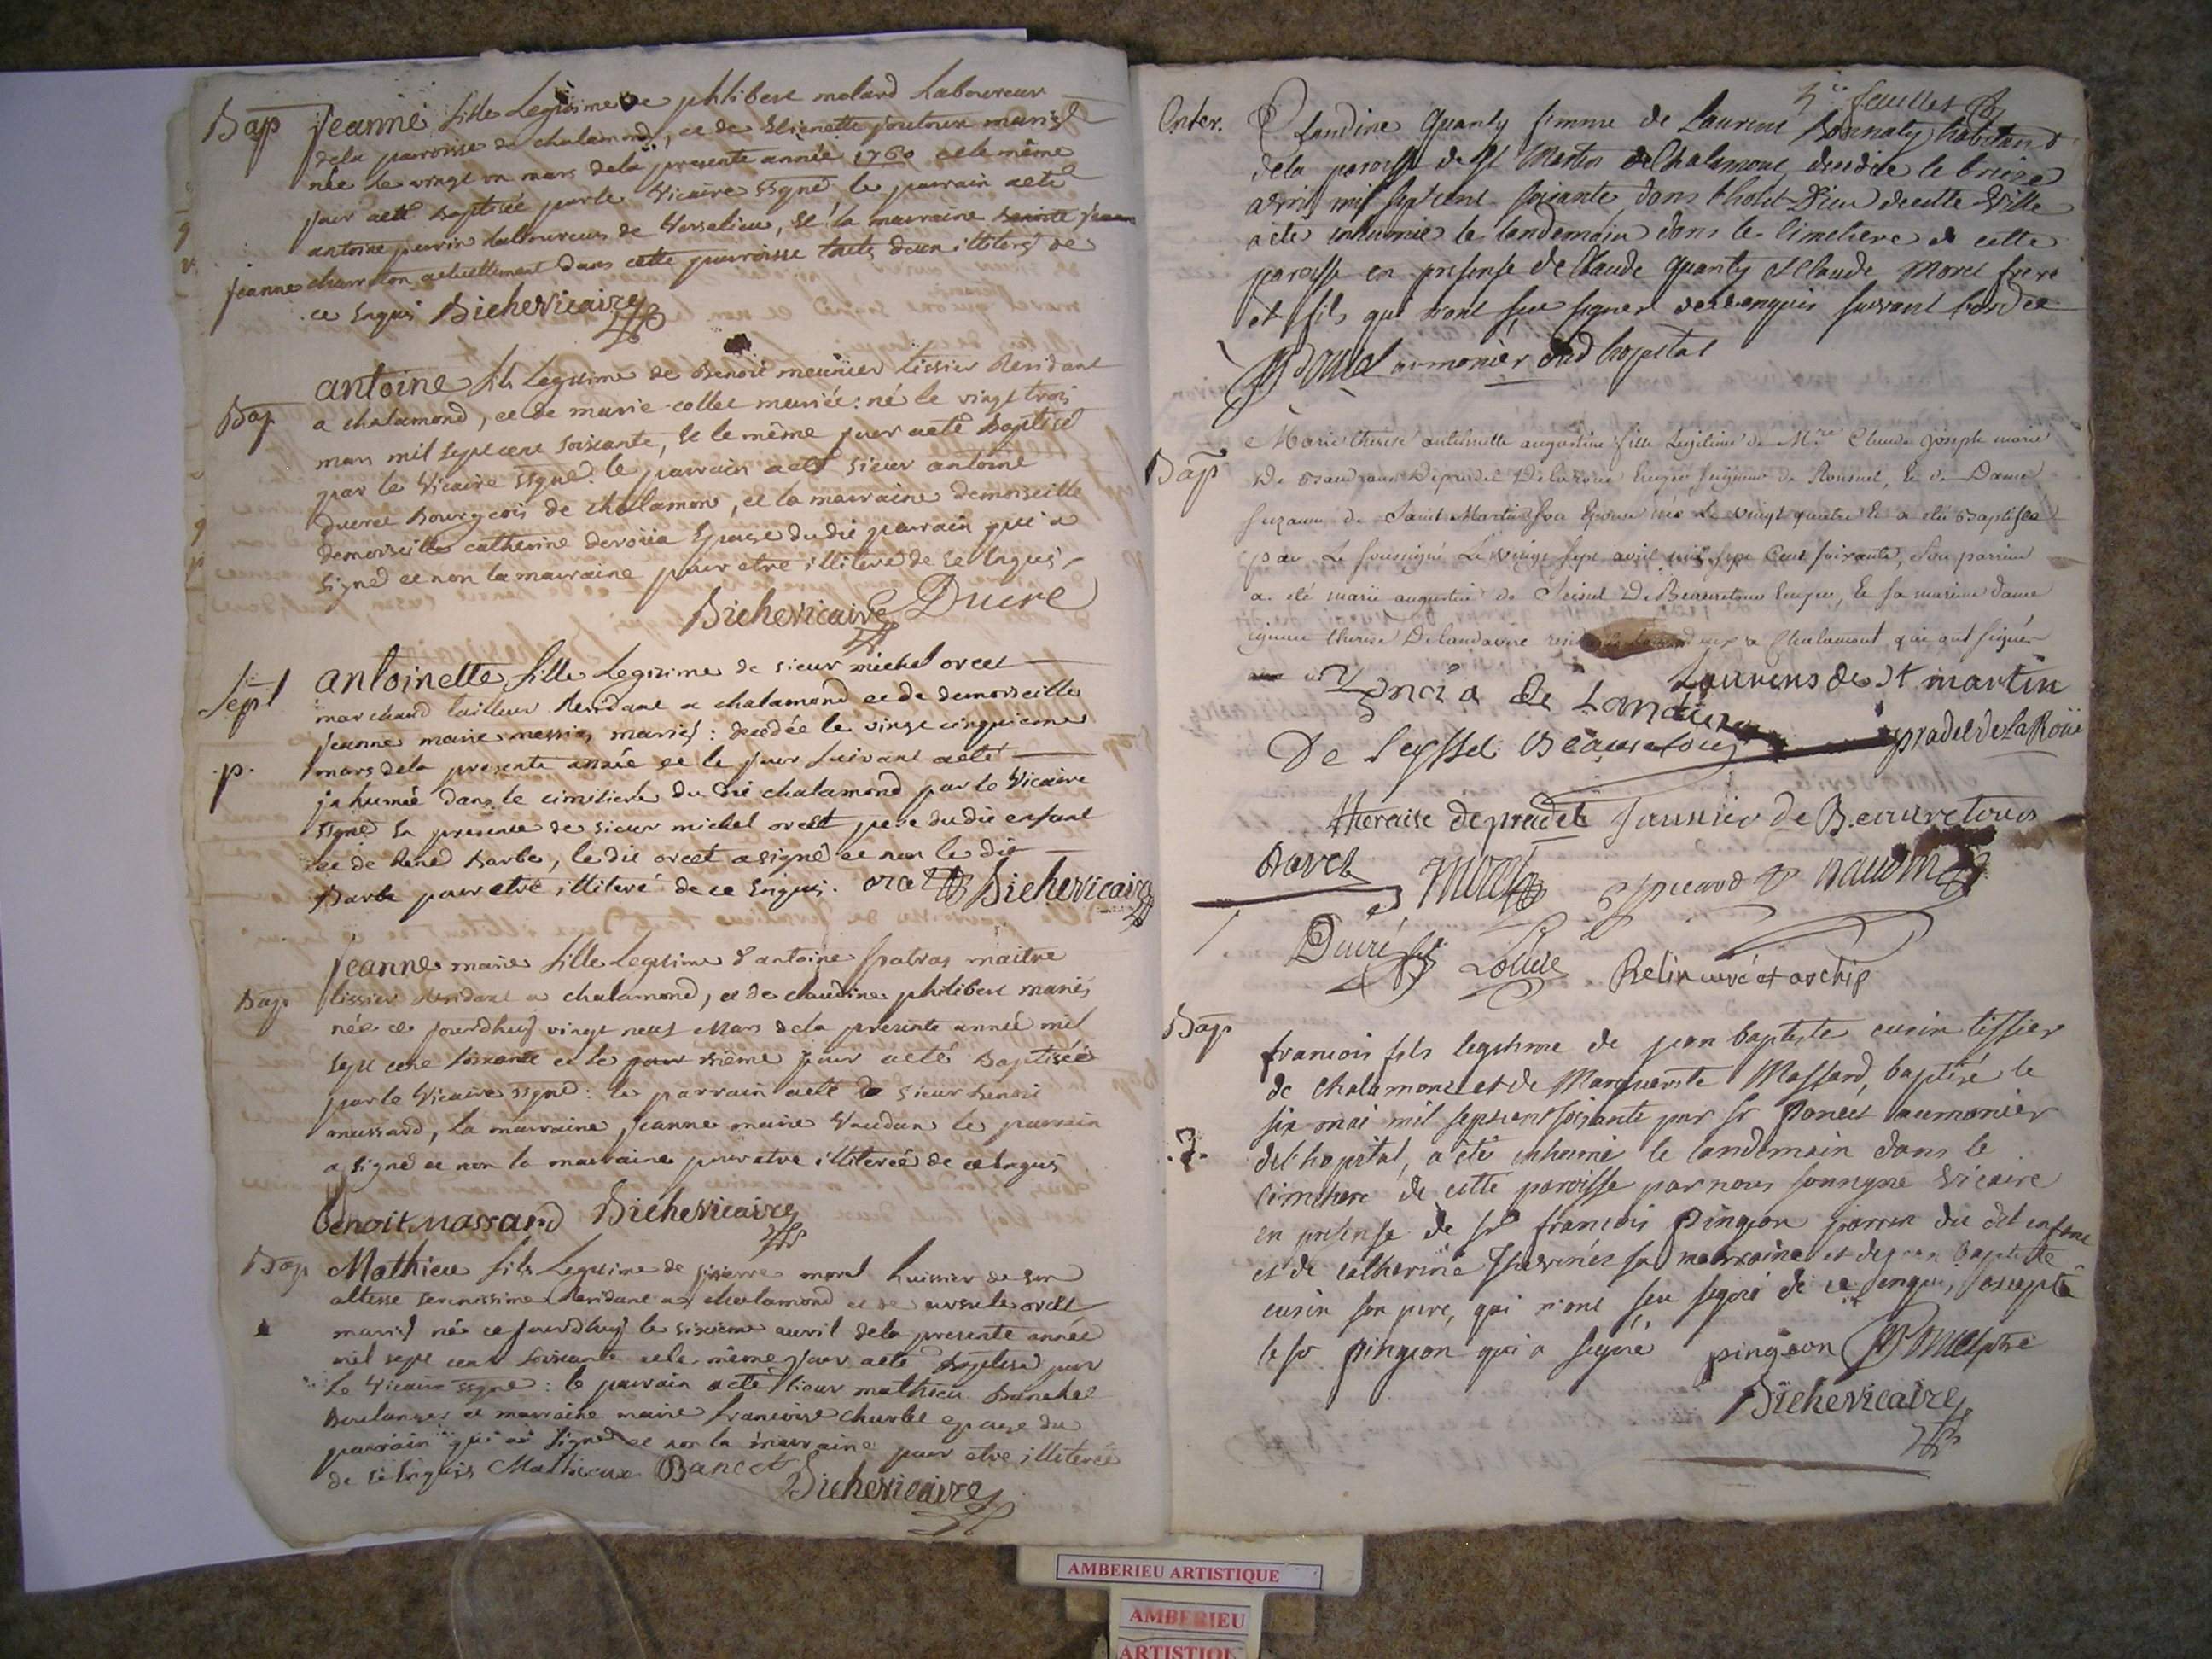 Bap Jeanne fille Legitime de philibert molard Laboureur
dela paroisse de chalamond, et de mariés
née le vingt un mars dela presente année 1760 et le même
jour aeté Baptisée par le Vicaire ssgné le parrain aeté
antoine perrin Laboureur de Versalieu, et la marraine
jeanne charreton actuellement dans cette parroisse touts deux illiterés de
ce Enquis Bichevicaire
antoine fils Legitime de Benoit meunier tissier Residant
Bap a chalamond, et de marie collet mariés: né le vingt trois
mars mil sept cent soixante, et le même jour aeté Baptisé
par le Vicaire ssgné. le parrain aeté sieur antoine
Ducret Bourgeois de chalamon, et la marraine demoiselle
demoiselle catherine Epouse dudit parrain qui a
signé et non la marraine pour etre illiteré de ce Enquis
Bichevicaire Ducre
Sept antoinette fille Legitime de sieur michel orcet
marchand tailleur Residant a chalamond et de demoiselle
jeanne marie messier mariés: decedée le vingt cinquieme
.p. mars dela presente année et le jour suivant aeté
inhumée dans le cimitiere du dit chalamond par le Vicaire
ssgné En presence de sieur michel orcet pere dudit enfant
et de René Barbe, le dit orcet a signé et non le dit
Barbe pour etre illiteré de ce Enquis. orcet Bichevicaire
Jeanne marie fille Legitime d'antoine spatras maitre
Bap tissier Residant a chalamond, et de claudine philibert mariés
née ce jourdhuy vingt neuf Mars dela presente année mil
sept cent soixante et le même jour aeté Baptisée
par le Vicaire ssgné: le parrain aeté sieur benoit
massard, la marraine jeanne marie Vaudan le parrain
a signé et non la marraine pour etre illiterée de ce Enquis
benoit Massard Bichevicaire
Bap Mathieu fils Legitime de pierre morel huissier de son
altesse serenissime Residant a chalamond et de ursule orcet
mariés né ce jourdhuy le sixieme avril dela presente année
mil sept cent soixante et le même jour aeté Baptisé par
le Vicaire ssgné: le parrain aeté sieur mathieu Banchet
Boulanger et marraine marie francoise churlet epouse du
parrain qui a signé et non la marraine pour etre illiterée
de ce Enquis Mathieux Bancet Bichevicaire
5e feuillet
Enter. Claudine Quanty femme de Laurent Bonnaty habitant
dela paroisse de St Martin de Chalamont, decedée le treize
avril mil septcent soixante dans lhotel Dieu de cette Ville
a été inhumée le landemain dans le cimetiere de cette
paroisse en presense de Claude Quanty et Claude Morel frere
et fils qui n'ont sçu signer de ce enquis suivant l'ordce
aumonier dud hopital
Marie therese antoinette augustine fille Legitime de Mre Claude joseph marie
Bap De Depradel Delaroüe Ecuyer seigneur de et de Dame
Suzanne de Saint Martin son Epouse née Le vingt quatre et a eté Baptisée
par Le soussigné Le vingt sept avril mil sept Cent soixante, son parrein
a eté marie augustin de Seissel De Beauretour Ecuyer, et sa mareine dame
therese a Chalamont, qui ont signés
Laurens de St martin
De Seyssel Beauretour pradel de la Roüe
theraise depradel de Beauretour
Ducré Relin curé et archip
Bap francois fils legitime de jean baptiste cusin tissier
de Chalamont et de Marguerite Massard, baptisé le
six mai mil septcent soixante par sr aumonier
.?. del hopital, a été inhumé le landemain dans le
cimetiere de cette paroisse par nous soussigné Vicaire
en presense de sr francois Pingeon parrin du dit enfant
et de catherine sa marraine et de jean baptiste
cusin son pere, qui n'ont sçu signé de ce enquis, excepté
le sr pingeon qui a signé pingeon
Bichevicaire
AMBERIEU ARTISTIQUE
AMBERIEU
ARTISTIQUE